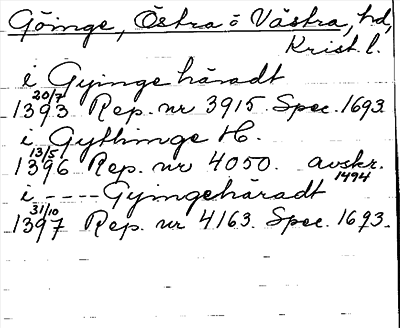 Göinge, Östra o Västra, hd,
Krist. l.
i Gyinge häradt
1393 20/7 Rep. nr 3915. Spec. 1693
i Gythinge H.
1396 13/5 Rep. nr 4050. avskr. 1494
i ---- Gyingehäradt
1397 31/10 Rep. nr 4163. Spec. 1693.